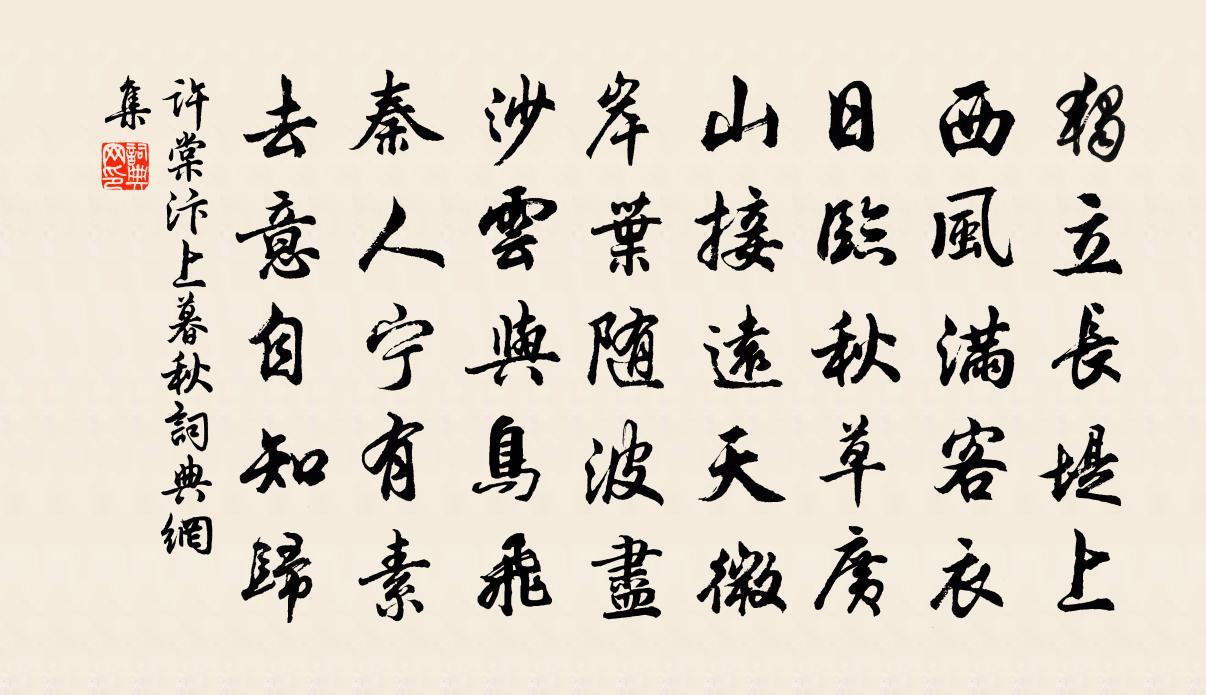 獨立長堤上
西風滿客衣
日臨秋草廣
山接遠天微
岸葉隨波盡
沙雲與鳥飛
秦人宁有素
去意自知歸
許棠汴上暮秋詞典網
集
詞典
网印